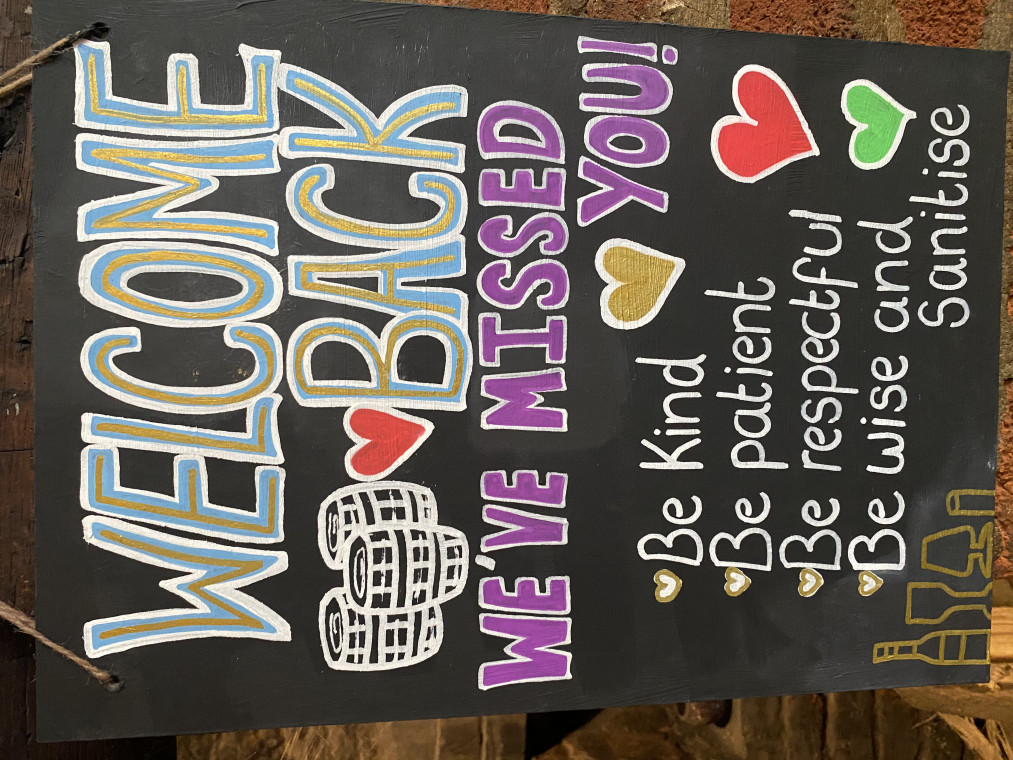 WELCOME
BACK
WE'VE MISSED
YOU!
Be Kind
Be patient
Be respectful
Be wise and
Sanitise